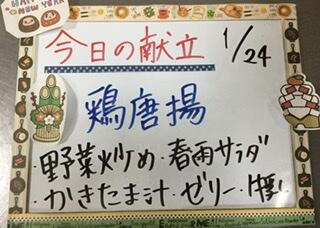 HAPPY NEW YEAR
今日の献立 1/24
鶏唐揚
・野菜炒め・春雨サラダ
・かきたま汁・ゼリー・